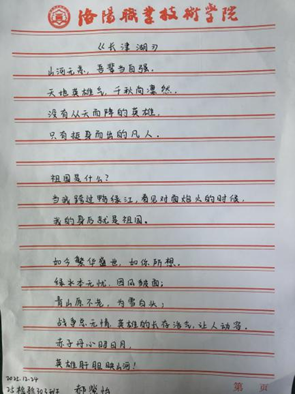 洛陽職業技術学院
《长津湖》
山河无恙，吾辈当自强。
天地英雄气，千秋尚凛然。
没有从天而降的英雄，
只有挺身而出的凡人。
祖国是什么？
当我跨过鸭绿江，看见对面炮火的时候，
我的身后就是祖国。
如今繁华盛世，如你所想。
绿水本无忧，因风皱面；
青山原不老，为雪白头；
战争是无情，英雄的长存浩志，让人动容。
赤子丹心昭日月，
英雄肝胆映山河！
2022.12.24
第 页